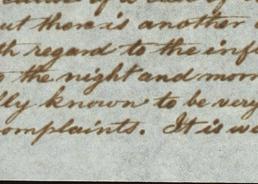 but there is another
th regard to the inf
the night and mor
lly known to be very
omplaints. It is w